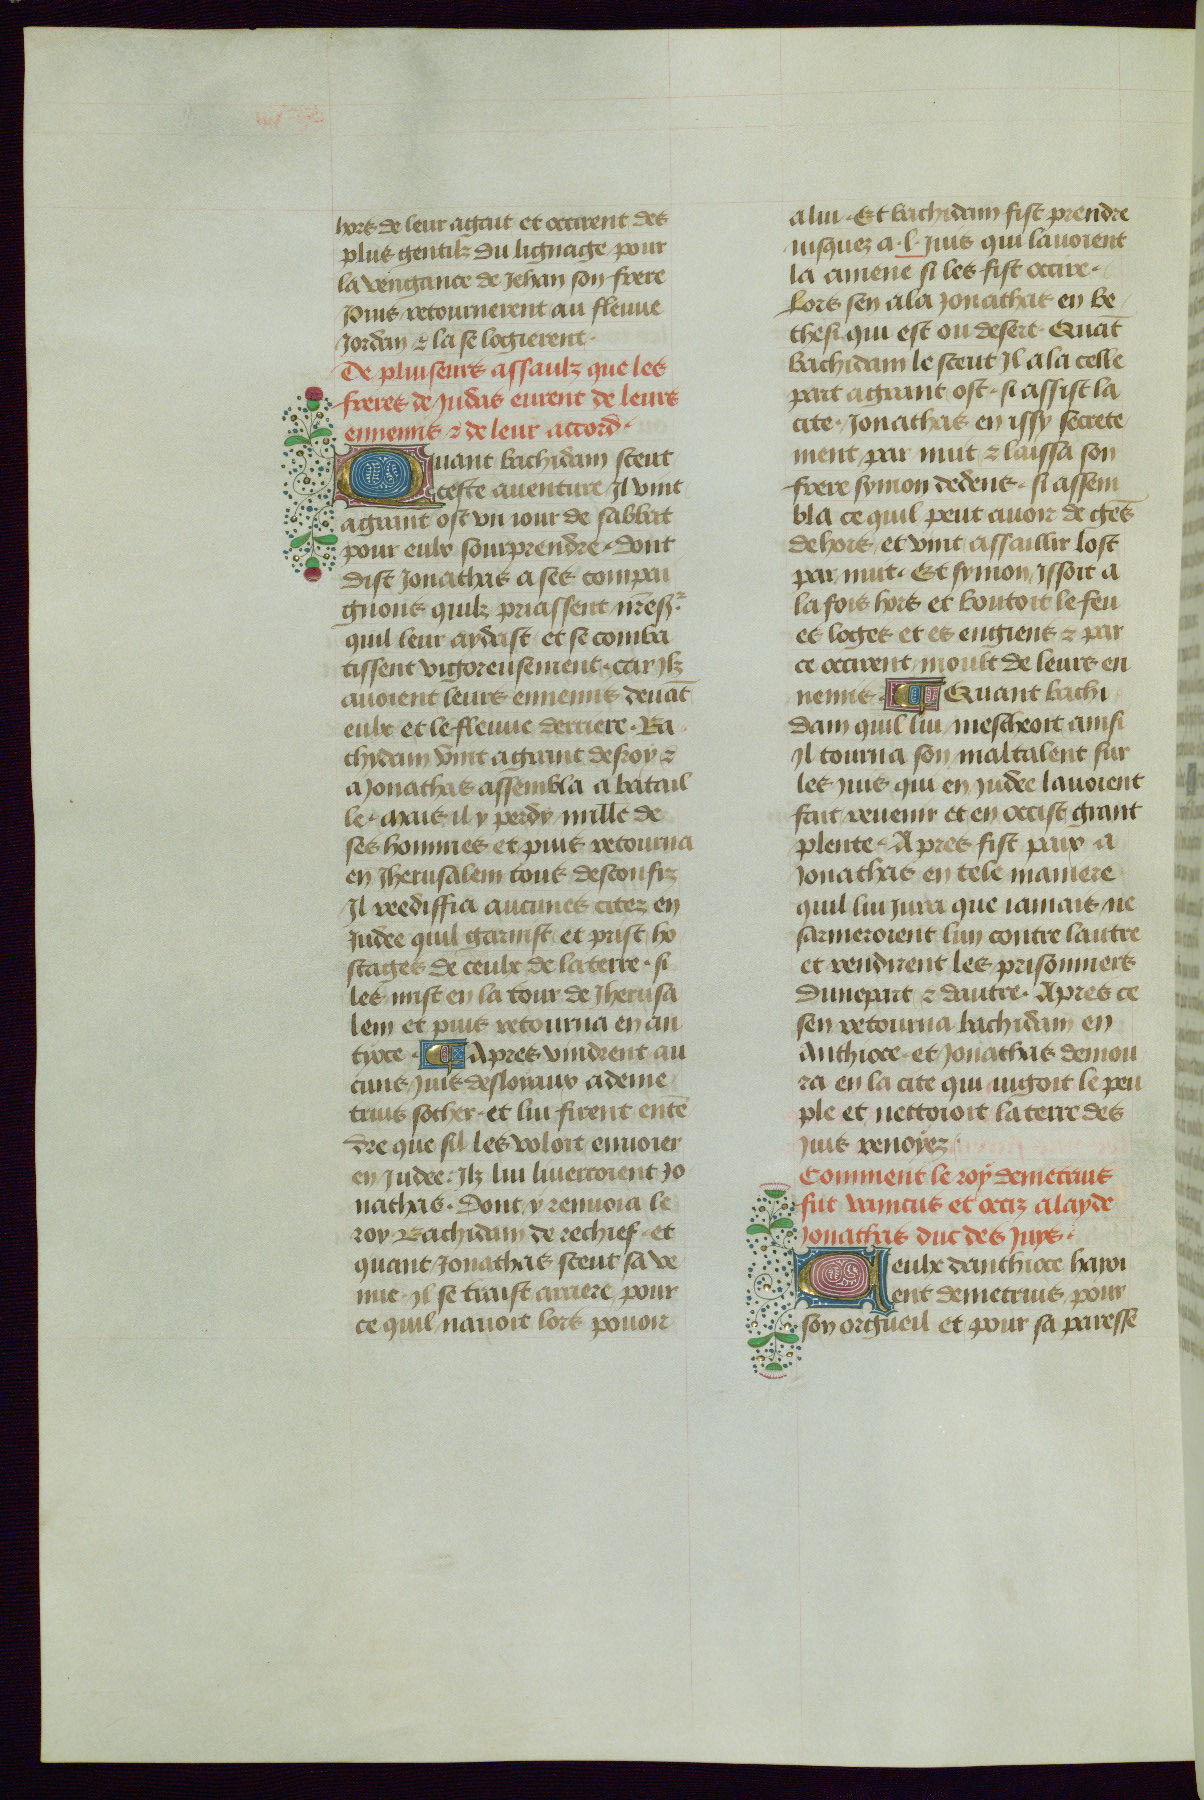 hors de leur agait et occirent des
plus gentilz du lignage pour
la vengance de Jehan son frere
Puis retournerent au fleuue
Jordan ⁊ la se logierent·
De pluiseurs assaulz que les
freres de Judas eurent de leurs
ennemis ⁊ de leur accord·
Quant bachidam sceut
ceste auenture Il vint
a grant ost vn iour de sabbat
pour eulx sourprendre· dont
dist Jonathas a ses compai
gnons quilz priassent nr̄e sr̄
quil leur aydast et se comba
tissent vigoreusement· car Ilz
auoient leurs ennemis deuāt
eulx et le fleuue derriere· Ba
chydam vint a grant desroy ⁊
a Jonathas assembla a batail
le· mais il y perdy mille de
ses hommes et puis retourna
en Jherusalem tous desconfiz
Il reediffia aucunes citez en
Judee quil garnist et prist ho
stages de ceulx de la terre· si
les mist en la tour de Jherusa
lem et puis retourna en an
tioce· Apres vindrent au
cuns Juis desloiaux a deme
trius sother· et lui firent entē
dre que sil les voloit enuoier
en Judee· Ilz lui liuerroient Jo
nathas· Dont y renuoia le
roy Bachidam de rechief· et
quant Jonathas sceut sa ve
nue Il se traist arriere pour
ce quil nauoit lors pouoir
a lui· Et bachidam fist prendre
iusquez a ·l· Juis qui lauoient
la amene si les fist occire·
Lors sen ala Jonathas en be
thesi qui est ou desert· Quāt
bachidam le sceut Il ala celle
part a grant ost· si assist la
cite· Jonathas en issy secrete
ment par nuit ⁊ laissa son
frere symon dedens· si assem
bla ce quil peut auoir de gēs
dehors et vint assaillir lost
par nuit· Et symon Issoit a
la fois hors et boutoit le feu
es loges et es engiens ⁊ par
ce occirent moult de leurs en
nemis· Quant bachi
dam quil lui mescheoit ainsi
Il tourna son maltalent sur
les Juis qui en Judee lauoient
fait reuenir et en occist grant
plente· Apres fist paix a
Jonathas en tele maniere
quil lui Jura que iamais ne
sarmeroient lun contre lautre
et rendirent les prisonniers
dune part ⁊ dautre· Apres ce
sen retourna bachidam en
Anthioce· et Jonathas demou
ra en la cite qui iugoit le peu
ple et nettoioit la terre des
Juis renoyez·
Comment le roy demetrius
fut vaincus et occiz a layde
Jonathas duc des Juys·
Ceulx danthioce haioi
ent demetrius pour
son orgueil et pour sa paresse